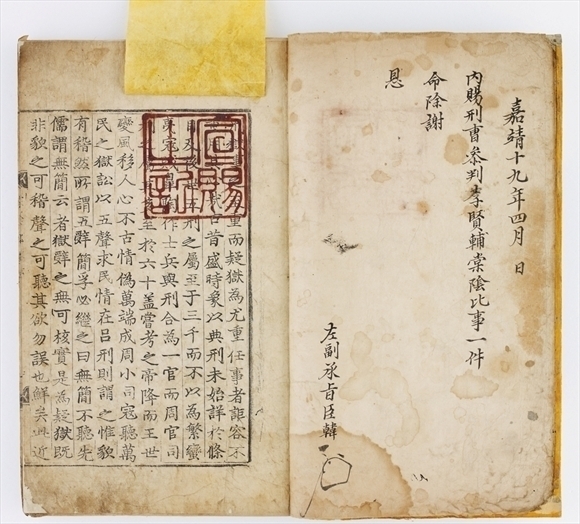 嘉靖十九年四月 日
內賜刑曹叅判李賢輔棠陰比事一件
命除謝
恩
左副承旨臣韓
宣賜之記
重而疑獄為尤重任事者詎容不
曰昔盛時象以典刑未始詳於條
後世五刑之屬至于三千而不以為繁蠻
夷寇作士兵與刑合為一官而周官司
至於六十盖嘗考之帝降而王世
變風移人心不古情偽萬端成周小司寇聽萬
民之獄訟以五聲求民情在呂刑則謂之惟貌
有稽然所謂五辭簡孚必繼之曰無簡不聽先
儒謂無簡云者獄辭之無可核實是為疑獄既
非貌之可稽聲之可聽其欲勿誤也鮮矣此近